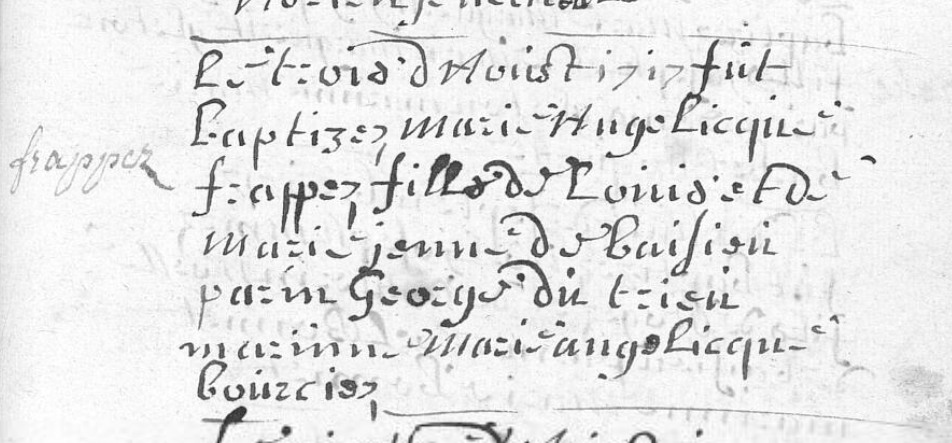 Le trois d'Aoust 1717 fut
baptizez Marie Angelicque
frappez
frappez fille de Louis et de
Marie jenne de baisieu
parin George du trieu
marinne Marie angelicque
bourciez